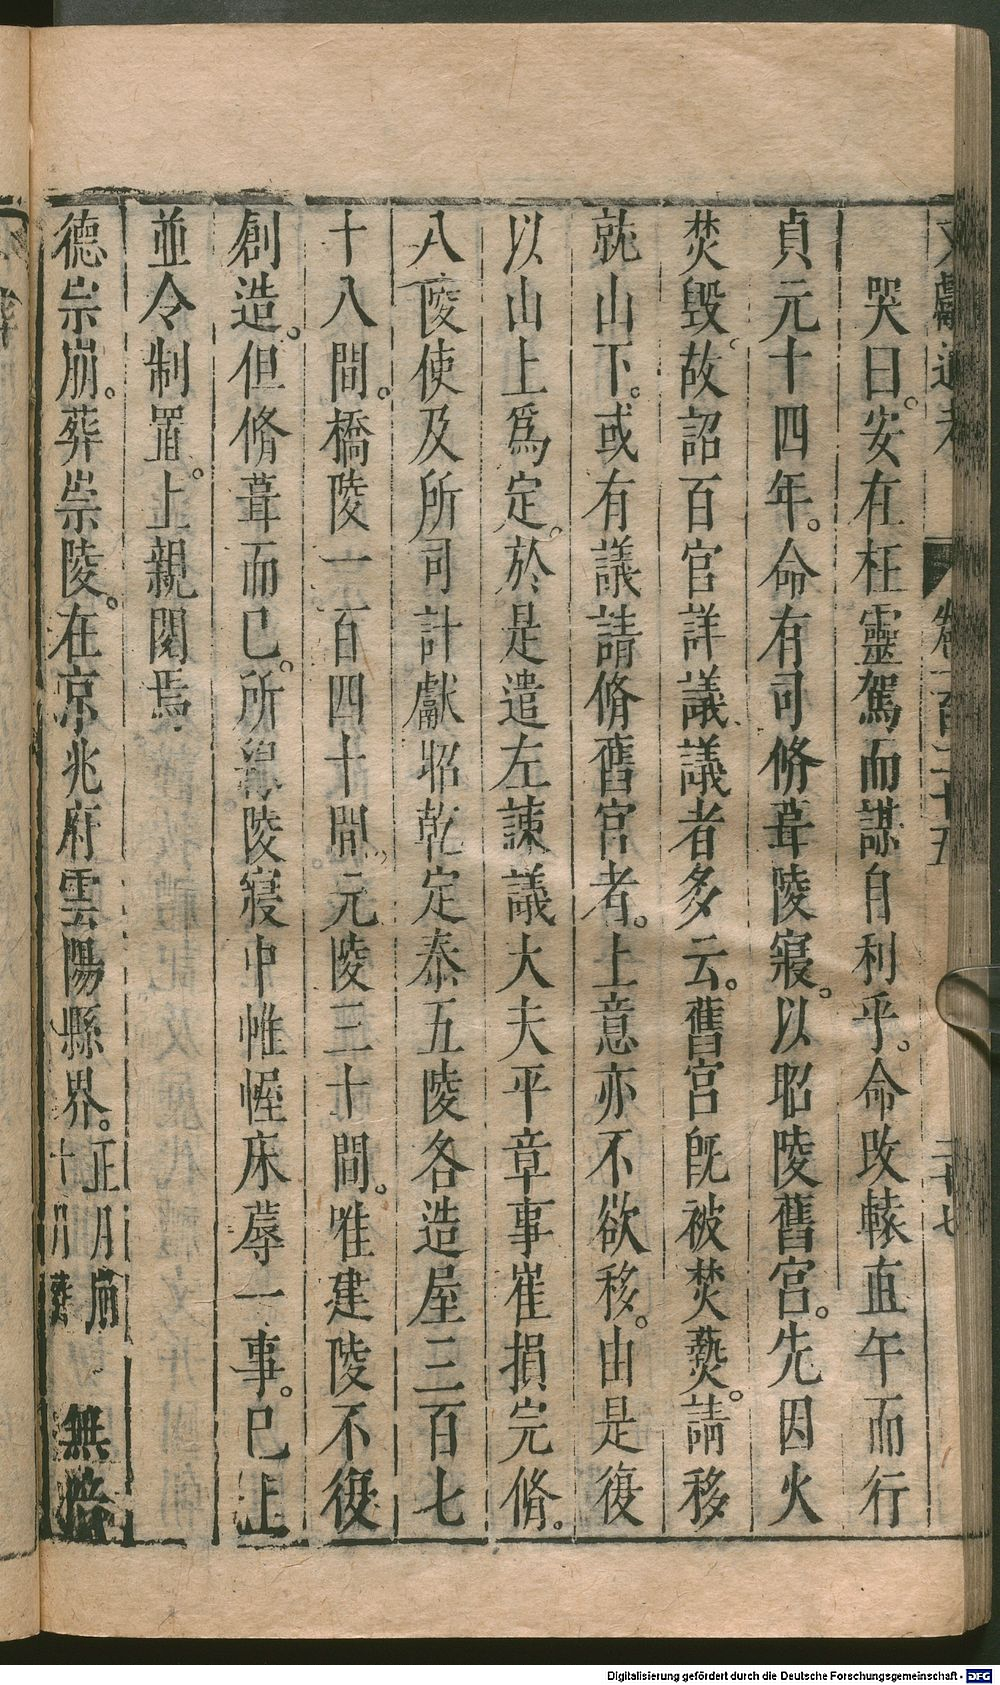 文獻通考 卷一百二十五 二十七
哭曰。安在枉靈駕而謀自利乎。命改轅直午而行
貞元十四年。命有司脩葺陵寢。以昭陵舊宮。先因火
焚毀。故詔百官詳議議者多云。舊宮既被焚爇。請移
就山下。或有議請脩舊宮者。上意亦不欲移。由是復
以山上爲定。於是遣左諫議大夫平章事崔損完脩。
八陵使及所司計獻昭乾定泰五陵各造屋三百七
十八間。橋陵一百四十間。元陵三十間。唯建陵不復
創造。但脩葺而已。所緣陵寢中帷幄床蓐一事。已上
並令制置。上親閱焉
德崇崩。葬崇陵。在京兆府雲陽縣界。正月崩十月葬 無陪
Digitalisierung gefördert durch die Deutsche Forschungsgemeinschaft - DFG